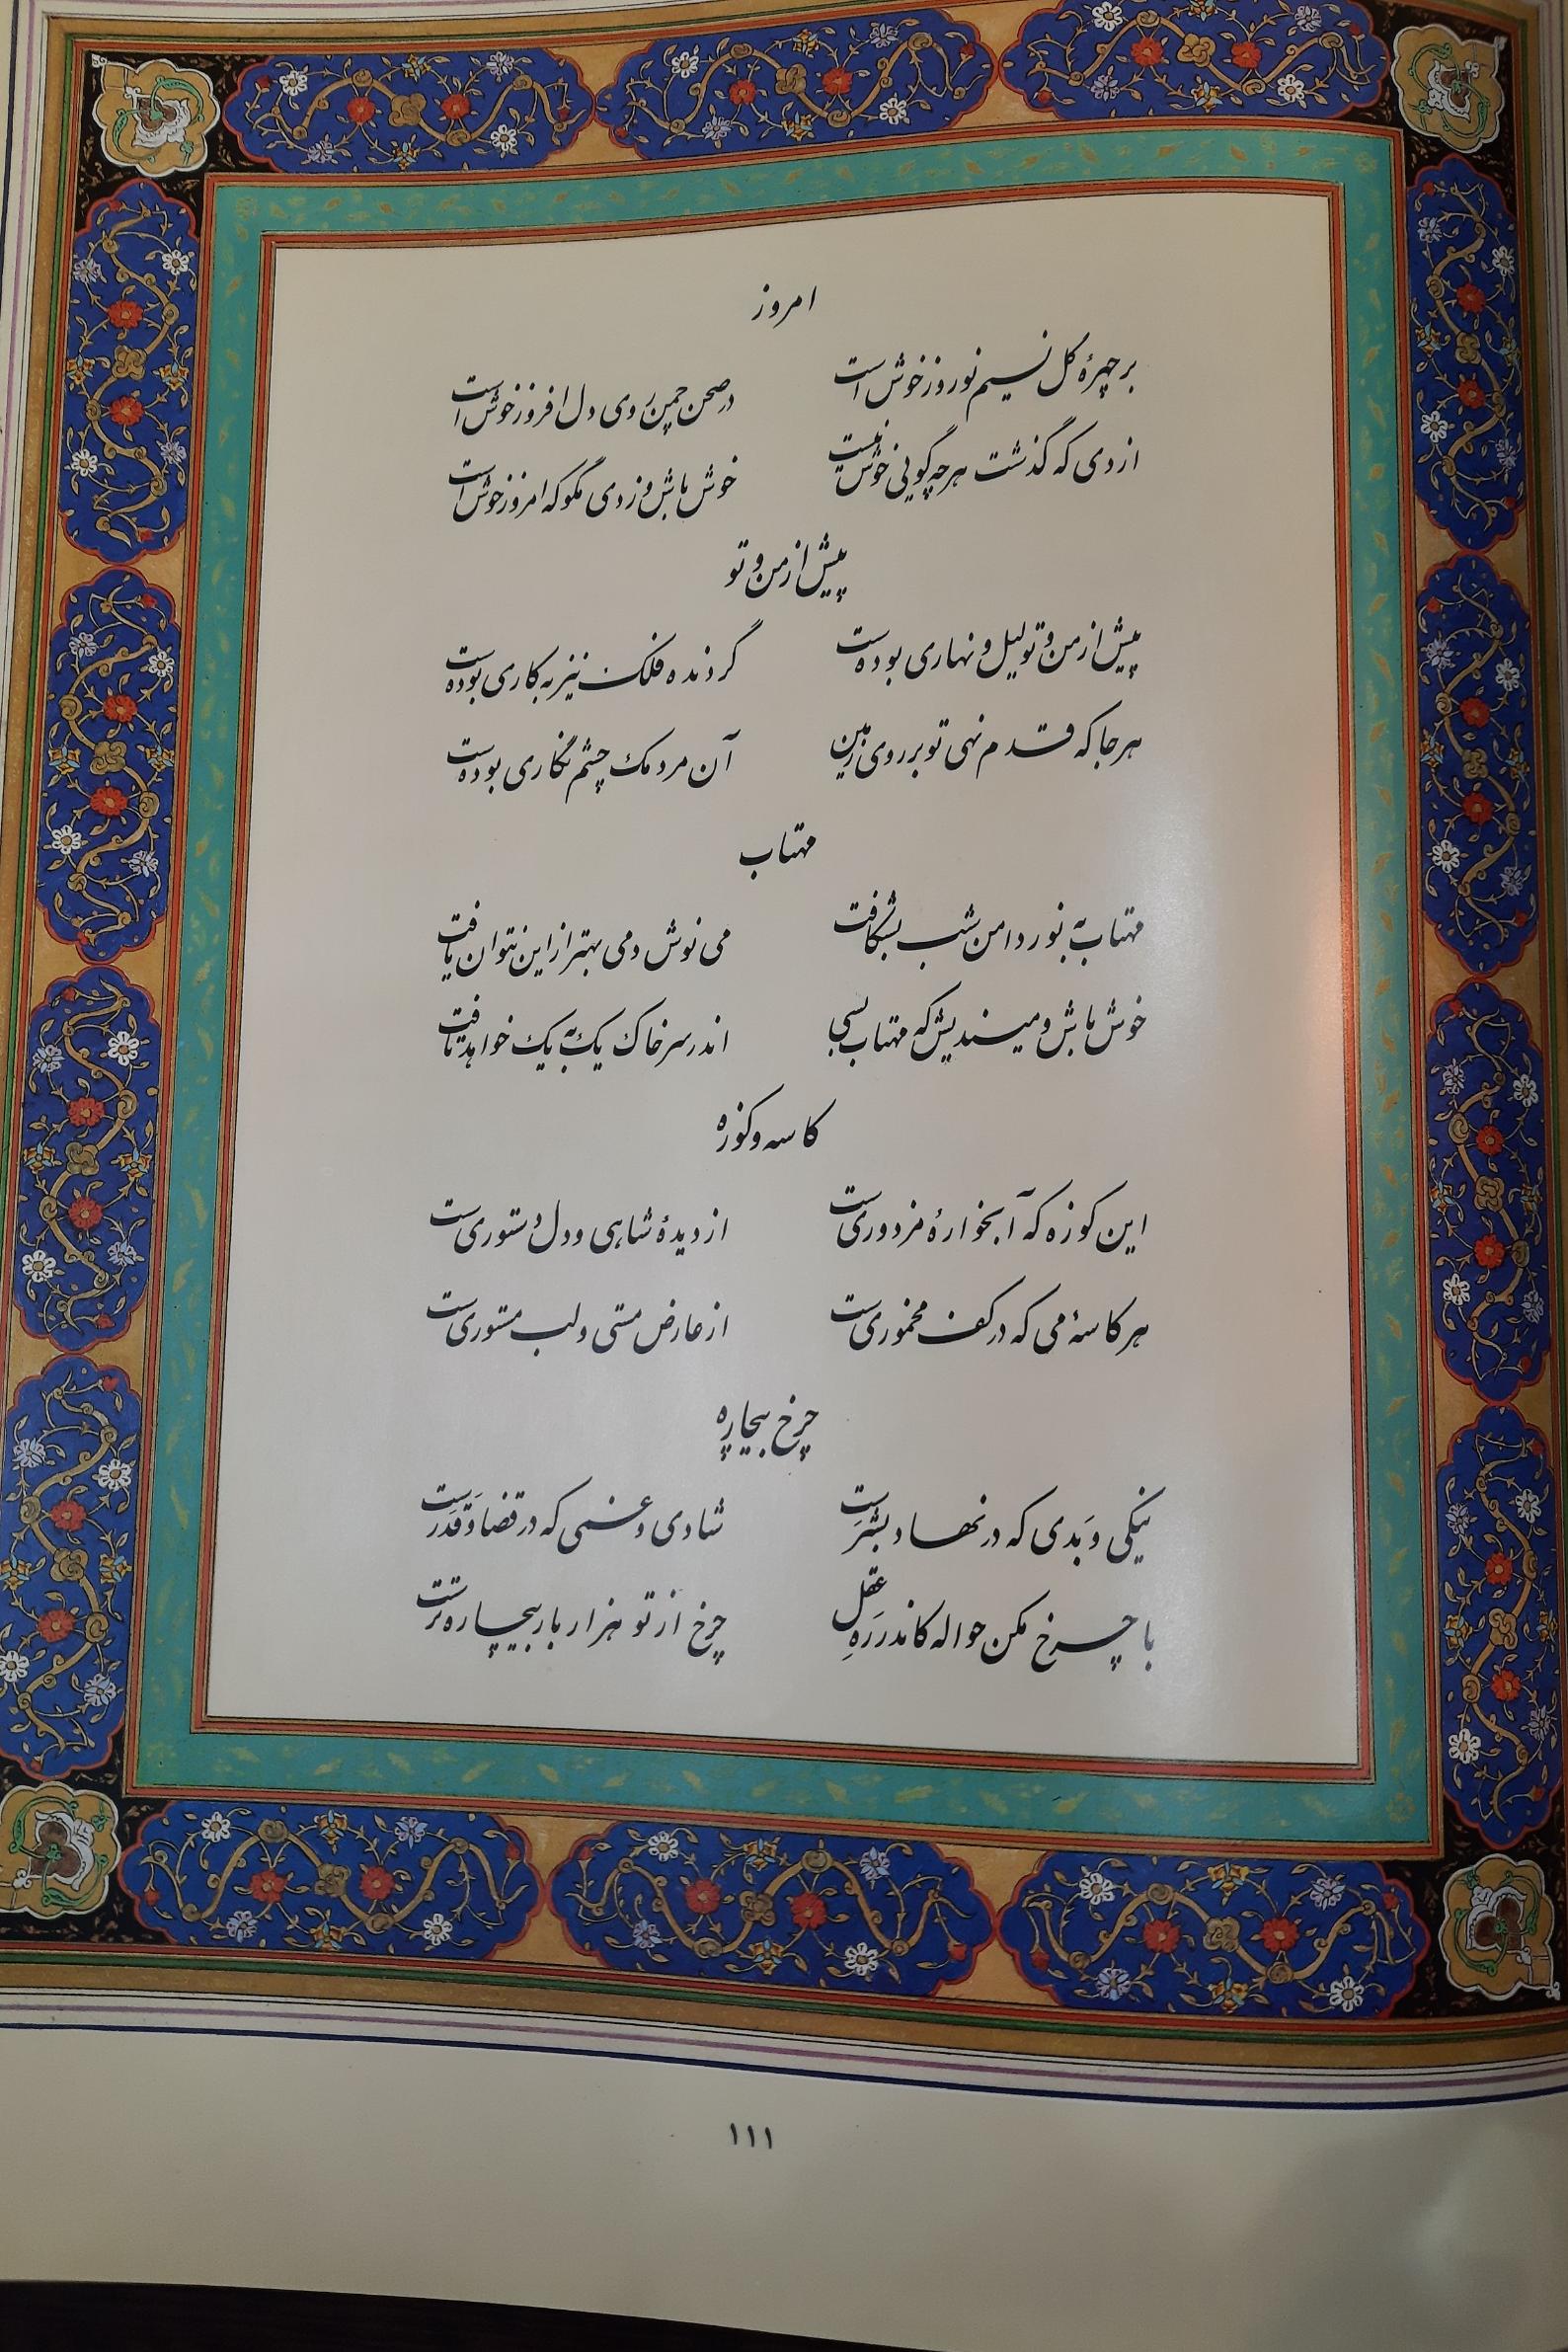 امروز
بر چهرهٔ گل نسیم نوروز خوش است در صحن چمن روی دل افروز خوش است
از دی که گذشت هر چه گویی خوش نیست خوش باش و ز دی مگو که امروز خوش است
پیش از من و تو
پیش از من و تو لیل و نهاری بوده ست گردنده فلک نیز به کاری بوده ست
هر جا که قدم نهی تو بر روی زمین آن مردمک چشم نگاری بوده ست
مهتاب
مهتاب به نور دامن شب بشکافت می نوش دمی بهتر از این نتوان یافت
خوش باش و میندیش که مهتاب بسی اندر سر خاک یک به یک خواهد یافت
کاسه و کوزه
این کوزه که آبخوارهٔ مزدوری ست از دیدهٔ شاهی و دل دستوری ست
هر کاسهٔ می که در کف مخموری ست از عارض مستی و لب مستوری ست
چرخ بیچاره
نیکی و بَدی که در نهاد بشرَ ست شادی و غمی که در قضا و قَدَر ست
با چرخ مکن حواله کاندر رَهِ عقل چرخ از تو هزار بار بیچاره ترَ ست
۱۱۱